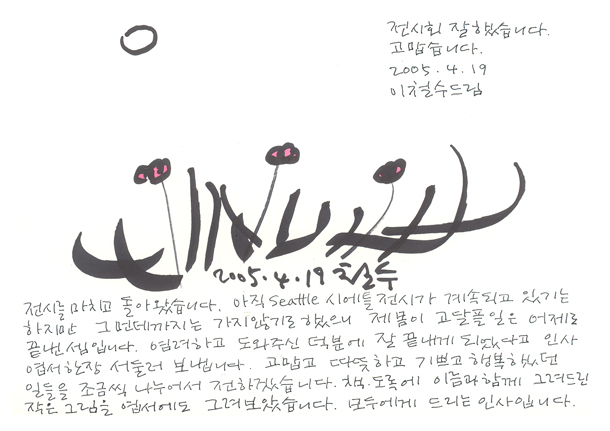 전시회 잘했습니다.
고맙습니다.
2005. 4. 19
이철수드림
2005. 4. 19 철수
전시를 마치고 돌아왔습니다. 아직 Seattle 시에틀 전시가 계속되고 있기는
하지만 그 먼데까지는 가지않기로 했으니 제 몸이 고달플일은 어제로
끝낸 셈입니다. 염려하고 도와주신 덕분에 잘 끝내게 되었다고 인사
엽서한장 서둘러 보냅니다. 고맙고 따뜻하고 기쁘고 행복했던
일들을 조금씩 나누어서 전하겠습니다. 책·도록에 이름과 함께 그려드린
작은 그림을 엽서에도 그려보았습니다. 모두에게 드리는 인사입니다.